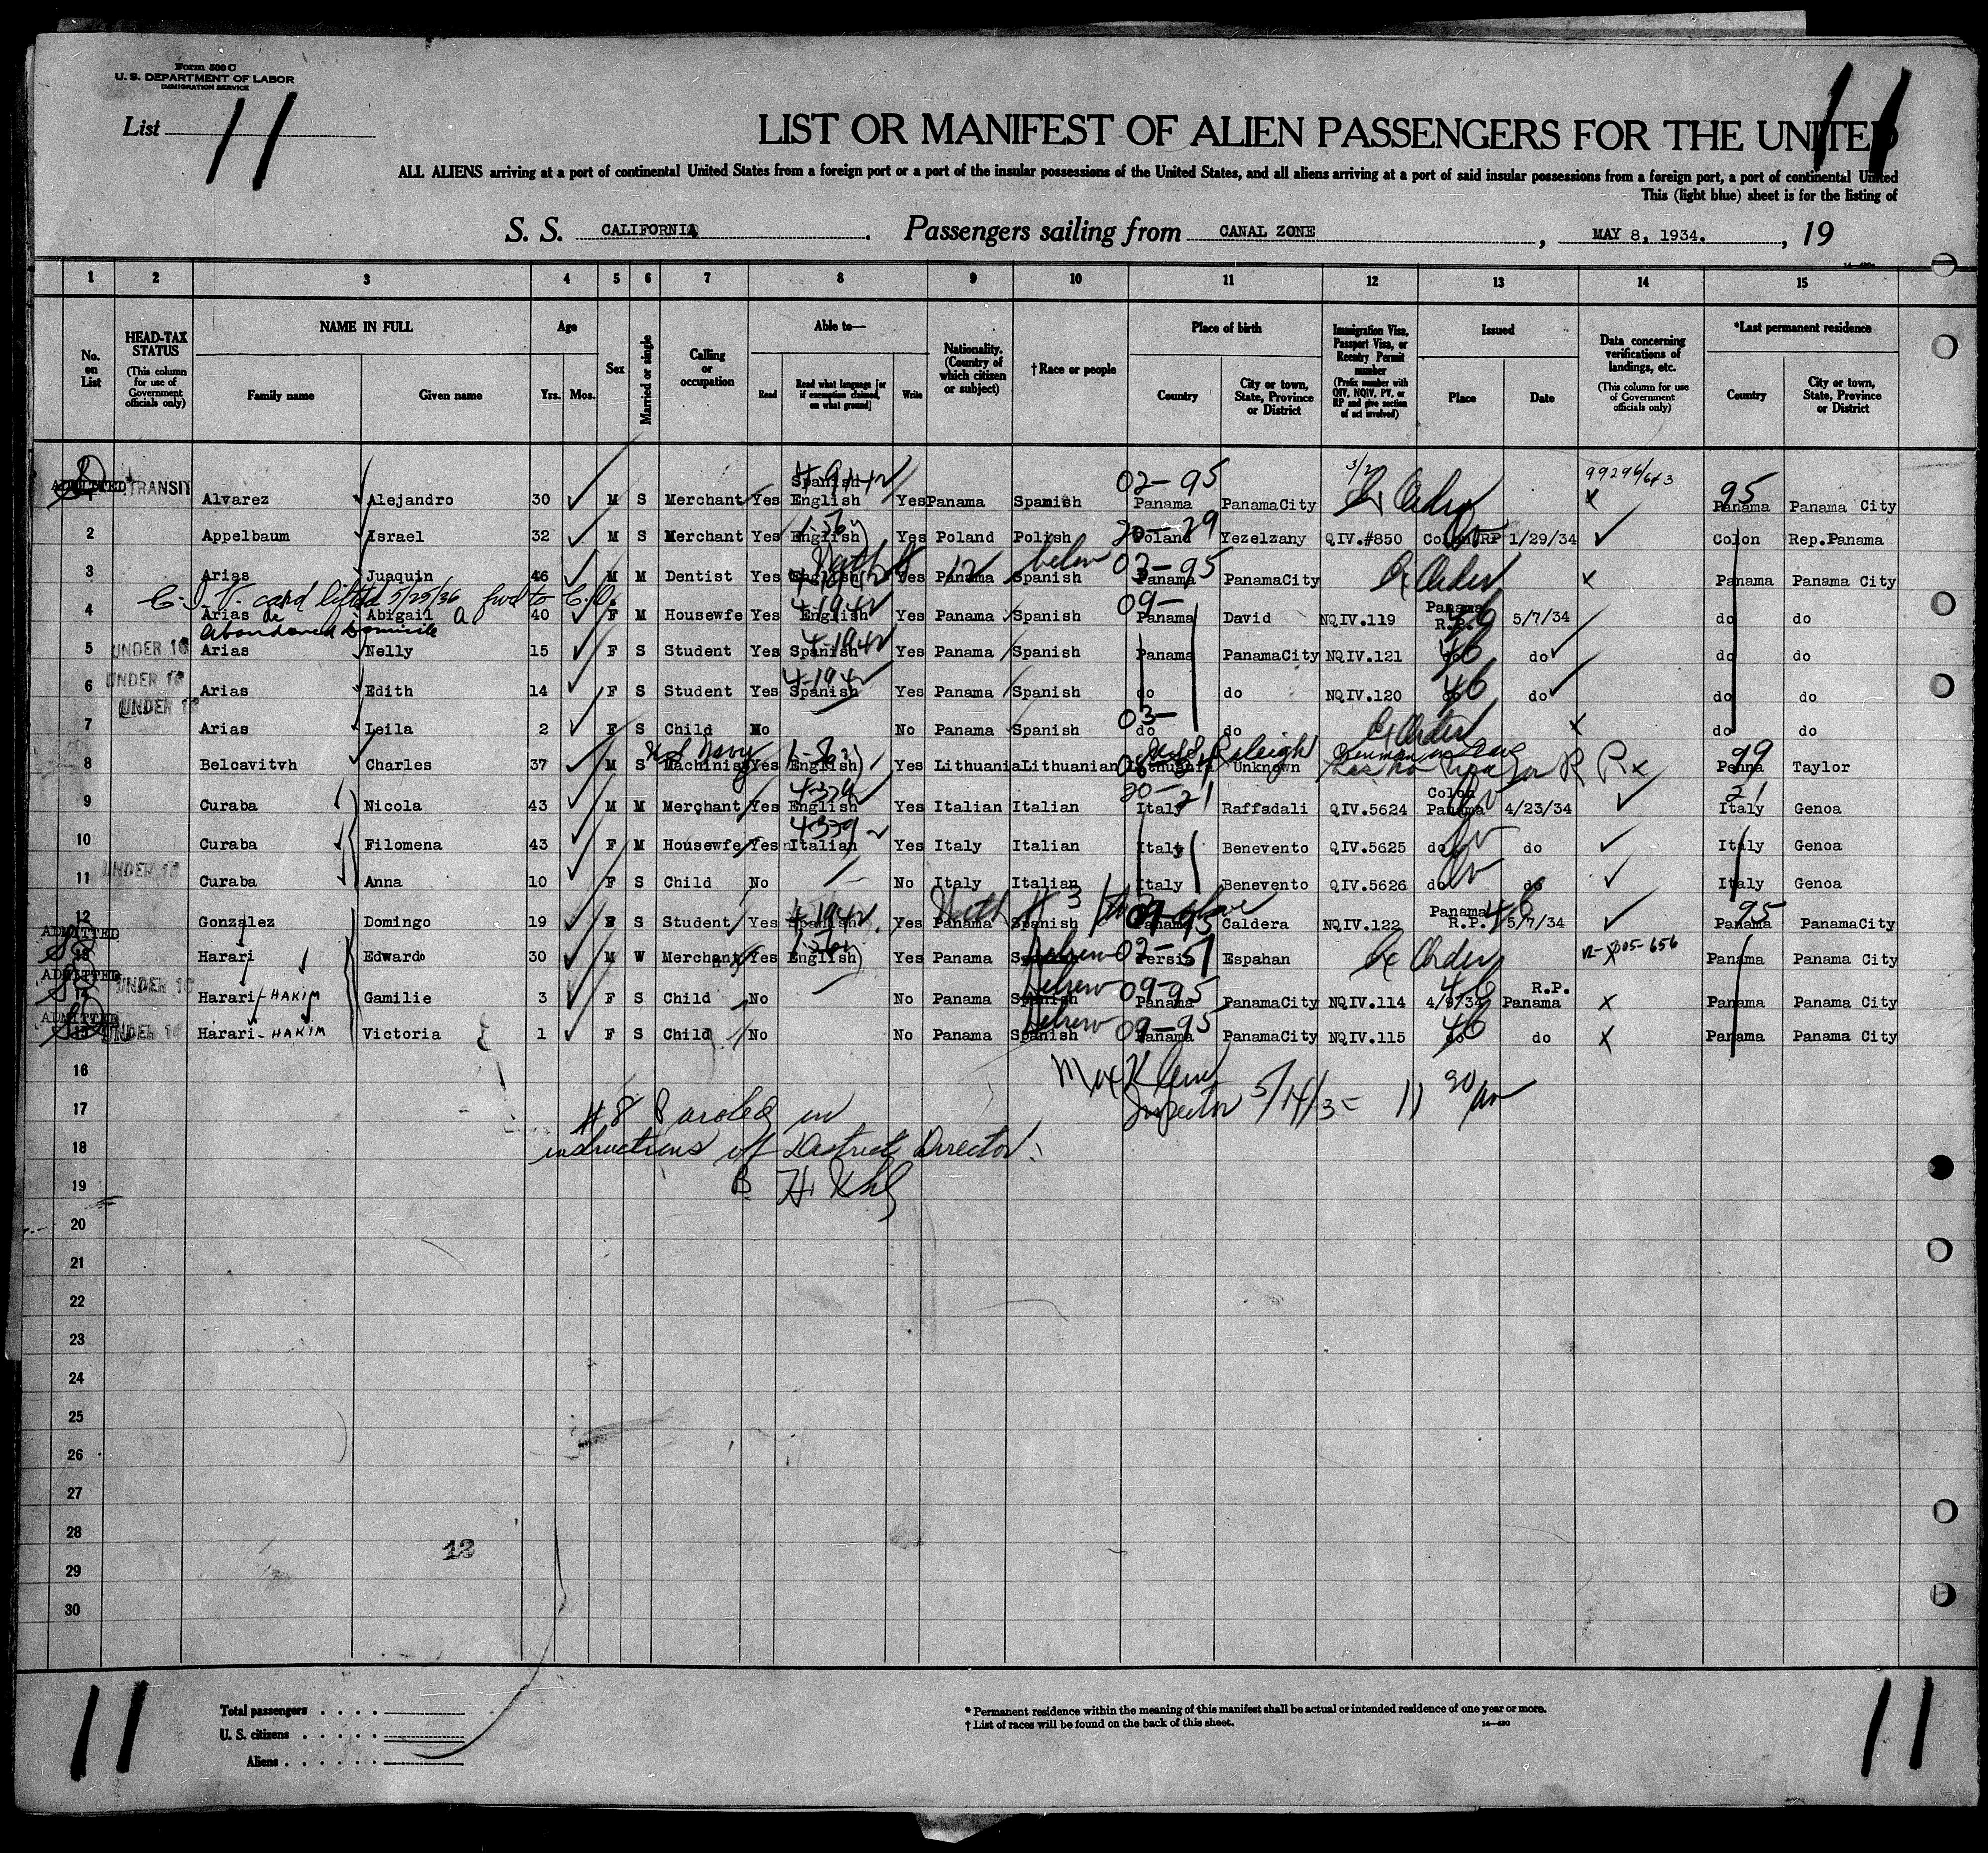 Form 500 C
U. S. DEPARTMENT OF LABOR
IMMIGRATION SERVICE
List 11
11
LIST OR MANIFEST OF ALIEN PASSENGERS FOR THE UNITED
ALL ALIENS arriving at a port of continental United States from a foreign port or a port of the insular possessions of the United States, and all aliens arriving at a port of said insular possessions from a foreign port, a port of continental United
This (light blue) sheet is for the listing of
S. S. CALIFORNIA. Passengers sailing from CANAL ZONE, MAY 8, 1934., 19
1 2 3 4 5 6 7 8 9 10 11 12 13 14 15
No. on List
HEAD-TAX STATUS (This column for use of Government officials only)
NAME IN FULL Family name Given name
Age Yrs. Mos.
Sex
Married or single
Calling or occupation
Able to— Read Read what language [or if exemption claimed, on what ground] Write
Nationality. (Country of which citizen or subject)
†Race or people
Place of birth Country City or town, State, Province or District
Immigration Visa, Passport Visa, or Reentry Permit number (Prefix number with QIV, NQIV, PV, or RP and give section of act involved)
Issued Place Date
Data concerning verifications of landings, etc. (This column for use of Government officials only)
*Last permanent residence Country City or town, State, Province or District
ADMITTED TRANSIT Spanish 02-95 99296/643 95
1 Alvarez Alejandro 30 M S Merchant Yes English Yes Panama Spanish Panama PanamaCity Ex Order x Panama Panama City
2 Appelbaum Israel 32 M S Merchant Yes English Yes Poland Polish Poland Yezelzany QIV.#850 Colon RP 1/29/34 Colon Rep.Panama
3 Arias Juaquin 46 M M Dentist Yes English Yes Panama Spanish Panama PanamaCity Ex Order x Panama Panama City
with 12 below 03-95
C.I.V. card lifted 5/25/36 fwd to C.O.
4 Arias de Abigail A 40 F M Housewfe Yes English Yes Panama Spanish Panama David NQIV.119 Panama R.P. 5/7/34 do do
4-1942 09-
abandoned Domicile
5 UNDER 16 Arias Nelly 15 F S Student Yes Spanish Yes Panama Spanish Panama PanamaCity NQIV.121 do do do do
4-1942 46
6 UNDER 16 Arias Edith 14 F S Student Yes Spanish Yes Panama Spanish do do NQIV.120 do do do do
4-1942 46
7 UNDER 16 Arias Leila 2 F S Child No No Panama Spanish do do Ex Order x do do
03-
8 Belcavitvh Charles 37 M S Machinist Yes English Yes Lithuania Lithuanian Lithuania Unknown x Penna Taylor
Navy Raleigh 99
9 Curaba Nicola 43 M M Merchant Yes English Yes Italian Italian Italy Raffadali QIV.5624 Colon Panama 4/23/34 Italy Genoa
20-21 21
10 Curaba Filomena 43 F M Housewfe Yes Italian Yes Italy Italian Italy Benevento QIV.5625 do do Italy Genoa
11 UNDER 16 Curaba Anna 10 F S Child No No Italy Italian Italy Benevento QIV.5626 do do Italy Genoa
With # 3 above
12 Gonzalez Domingo 19 S Student Yes Spanish Yes Panama Spanish Panama Caldera NQIV.122 Panama R.P. 5/7/34 Panama PanamaCity
4-1942 46 95
ADMITTED
13 Harari Edwardo 30 M W Merchant Yes English Yes Panama Spanish Hebrew Persia Espahan Ex Order x Panama Panama City
ADMITTED UNDER 16
14 Harari-HAKIM Gamilie 3 F S Child No No Panama Spanish Hebrew 09-95 Panama PanamaCity NQIV.114 4/9/34 R.P. Panama x Panama Panama City
ADMITTED UNDER 16
15 Harari-HAKIM Victoria 1 F S Child No No Panama Spanish Hebrew 09-95 Panama PanamaCity NQIV.115 do do x Panama Panama City
16
17 #8 Paroled on Inspector
18 instructions of District Director.
19
20
21
22
23
24
25
26
27
28
12
29
30
11
11
Total passengers
U. S. citizens
Aliens
* Permanent residence within the meaning of this manifest shall be actual or intended residence of one year or more.
† List of races will be found on the back of this sheet.
14—430